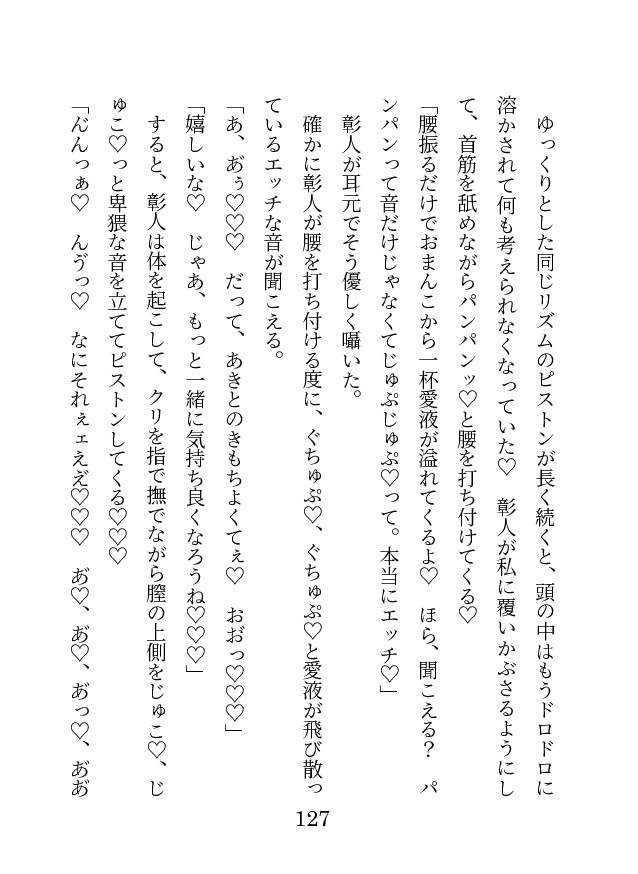 ゆっくりとした同じリズムのピストンが長く続くと、頭の中はもうドロドロに
溶かされて何も考えられなくなっていた♡　彰人が私に覆いかぶさるようにし
て、首筋を舐めながらパンパンッ♡と腰を打ち付けてくる♡
「腰振るだけでおまんこから一杯愛液が溢れてくるよ♡　ほら、聞こえる？　パ
ンパンって音だけじゃなくてじゅぷじゅぷ♡って。本当にエッチ♡」
彰人が耳元でそう優しく囁いた。
確かに彰人が腰を打ち付ける度に、ぐちゅぷ♡、ぐちゅぷ♡と愛液が飛び散っ
ているエッチな音が聞こえる。
「あ、あ゙ぅ♡♡♡　だって、あきとのきもちよくてぇ♡　おお゙っ♡♡♡」
「嬉しいな♡　じゃあ、もっと一緒に気持ち良くなろうね♡♡♡」
すると、彰人は体を起こして、クリを指で撫でながら膣の上側をじゅこ♡、じ
ゅこ♡っと卑猥な音を立ててピストンしてくる♡♡♡
「ん゙んっぁ♡　んゔっ♡　なにそれぇェえ゙♡♡♡　あ゙♡、あ゙♡、あ゙っ♡、あ゙あ゙
127